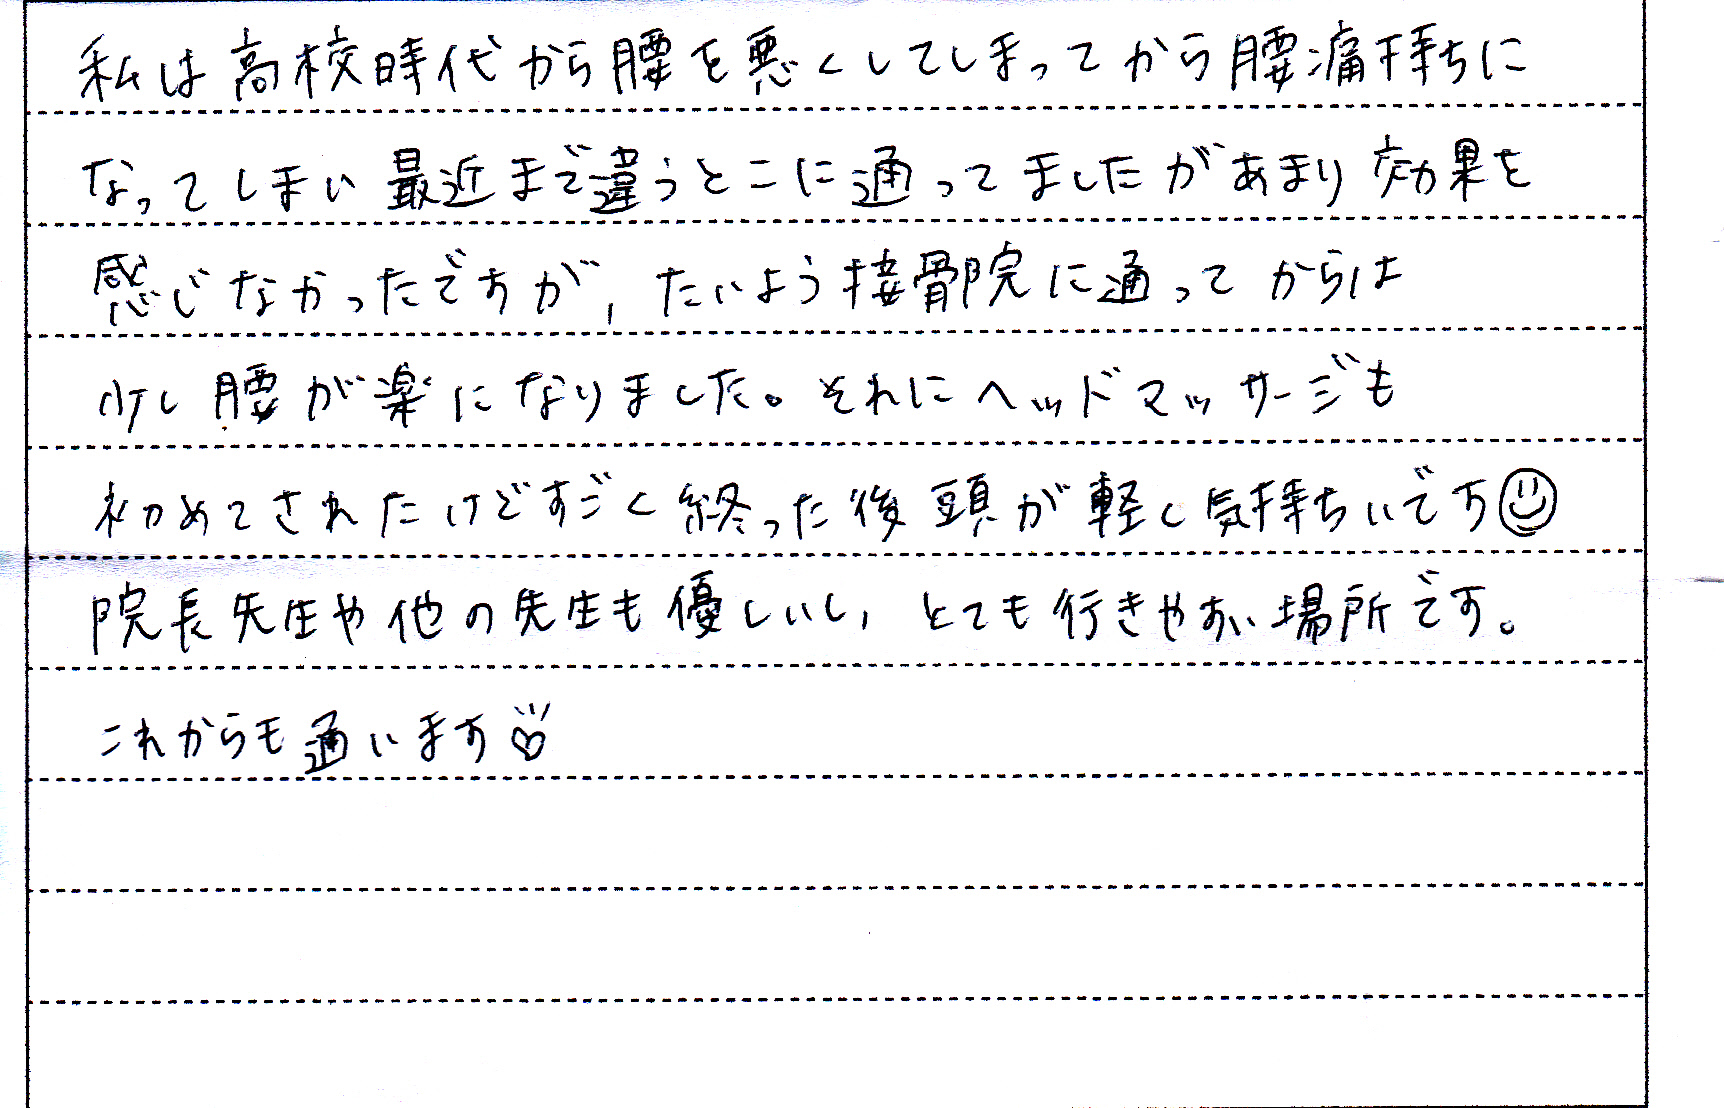 私は高校時代から腰を悪くしてしまってから腰痛持ちに
なってしまい最近まで違うとこに通ってましたがあまり効果を
感じなかったですが、たいよう接骨院に通ってからは
少し腰が楽になりました。それにヘッドマッサージも
初めてされたけどすごく終った後頭が軽く気持ちいです☺
院長先生や他の先生も優しいし、とても行きやすい場所です。
これからも通います♡